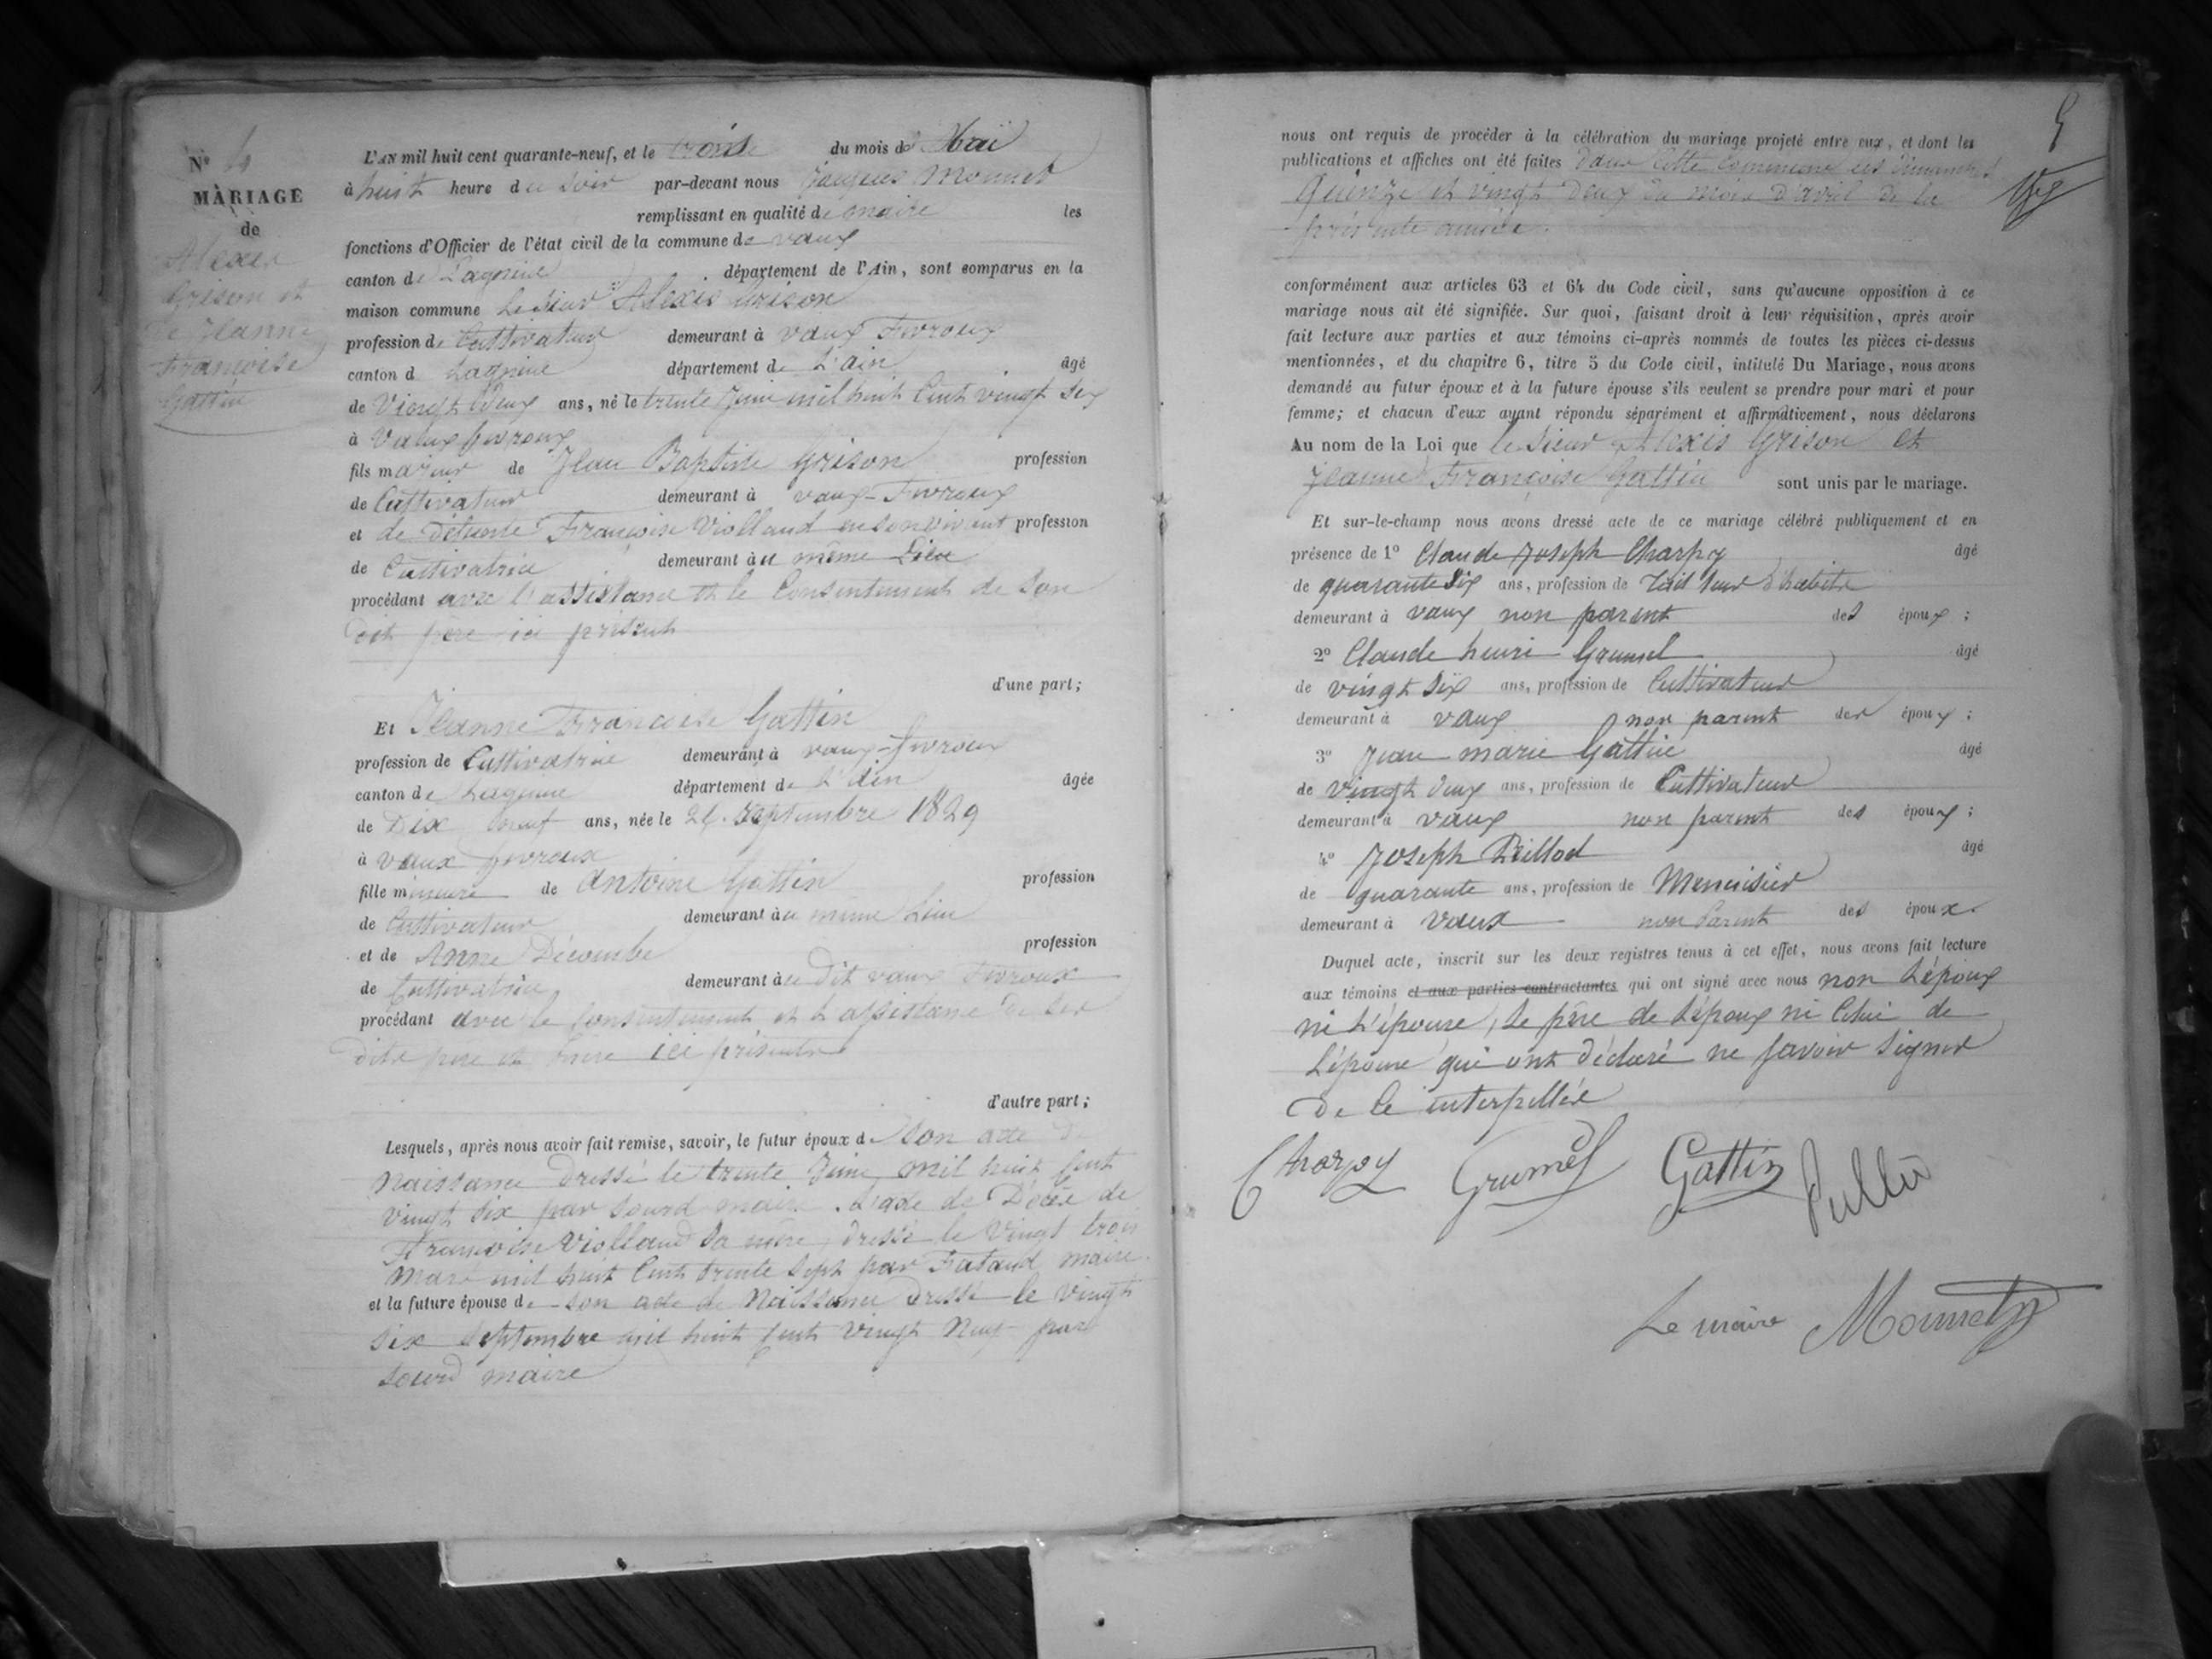 N° 4
MARIAGE
de
Alexis
Grison et
de Jeanne
Françoise
Gattin
L'AN mil huit cent quarante-neuf, et le trois du mois de Mai
à huit heure du soir par-devant nous Jacques Monnet
remplissant en qualité de maire les
fonctions d'Officier de l'état civil de la commune de vaux
canton de Lagnieu département de l'Ain, sont comparus en la
maison commune Le sieur Alexis Grison
profession de Cultivateur demeurant à vaux Fevroux
canton d Lagnieu département de L'ain âgé
de Vingt Deux ans, né le trente Juin mil huit Cent vingt Six
à Vaux fevroux
fils majeur de Jean Baptiste Grison profession
de Cultivateur demeurant à vaux-Fevroux
et de Défunte Françoise Viollaud en son vivant profession
de Cultivatrice demeurant au même Lieu
procédant avec l'assistance et le Consentement de Son
dit père ici présent
d'une part;
Et Jeanne Françoise Gattin
profession de Cultivatrice demeurant à vaux-fevroux
canton de Lagnieu département de L'ain âgée
de Dix neuf ans, née le 26 Septembre 1829
à vaux fevroux
fille mineure de Antoine Gattin profession
de Cultivateur demeurant au même Lieu
et de Anne Décombe profession
de Cultivatrice demeurant au Dit vaux Fevroux
procédant avec le Consentement et L'assistance de Ses
dits père et mère ici présents
d'autre part;
Lesquels, après nous avoir fait remise, savoir, le futur époux de Son acte de
Naissance Dressé le trente Juin mil huit Cent
vingt Six par Sourd maire. L'acte de Décès de
Françoise Viollaud Sa mère, dressé le Vingt trois
Mars mil huit Cent trente Sept par Rataud maire
et la future épouse de son acte de Naissance Dressé le vingt
Six Septembre mil huit Cent Vingt Neuf par
Sourd maire
5
nous ont requis de procéder à la célébration du mariage projeté entre eux, et dont les
publications et affiches ont été faites Dans Cette Commune les Dimanches
Quinze et vingt Deux du mois D'avril De la
présente année.
conformément aux articles 63 et 64 du Code civil, sans qu'aucune opposition à ce
mariage nous ait été signifiée. Sur quoi, faisant droit à leur réquisition, après avoir
fait lecture aux parties et aux témoins ci-après nommés de toutes les pièces ci-dessus
mentionnées, et du chapitre 6, titre 5 du Code civil, intitulé Du Mariage, nous avons
demandé au futur époux et à la future épouse s'ils veulent se prendre pour mari et pour
femme; et chacun d'eux ayant répondu séparément et affirmativement, nous déclarons
Au nom de la Loi que le Sieur Alexis Grison et
Jeanne Françoise Gattin sont unis par le mariage.
Et sur-le-champ nous avons dressé acte de ce mariage célébré publiquement et en
présence de 1° Claude Joseph Charpy âgé
de quarante Six ans, profession de Tailleur d'habits
demeurant à vaux non parent des époux;
2° Claude henri Grumel âgé
de vingt Six ans, profession de Cultivateur
demeurant à vaux non parent des époux;
3° Jean marie Gattin âgé
de vingt deux ans, profession de Cultivateur
demeurant à vaux non parent des époux;
4° Joseph âgé
de quarante ans, profession de Menuisier
demeurant à Vaux non Parent des époux.
Duquel acte, inscrit sur les deux registres tenus à cet effet, nous avons fait lecture
aux témoins et aux parties contractantes qui ont signé avec nous non L'époux
ni L'épouse, Le père de L'époux ni Celui de
L'épouse qui ont déclaré ne savoir Signer
De Ce interpellée
Charpy Grumel Gattin
Le maire Monnet